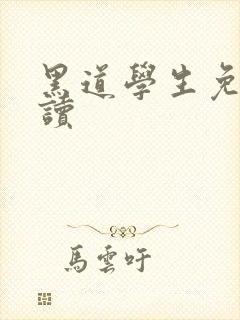 黑道學生免
讀
馬雲吁